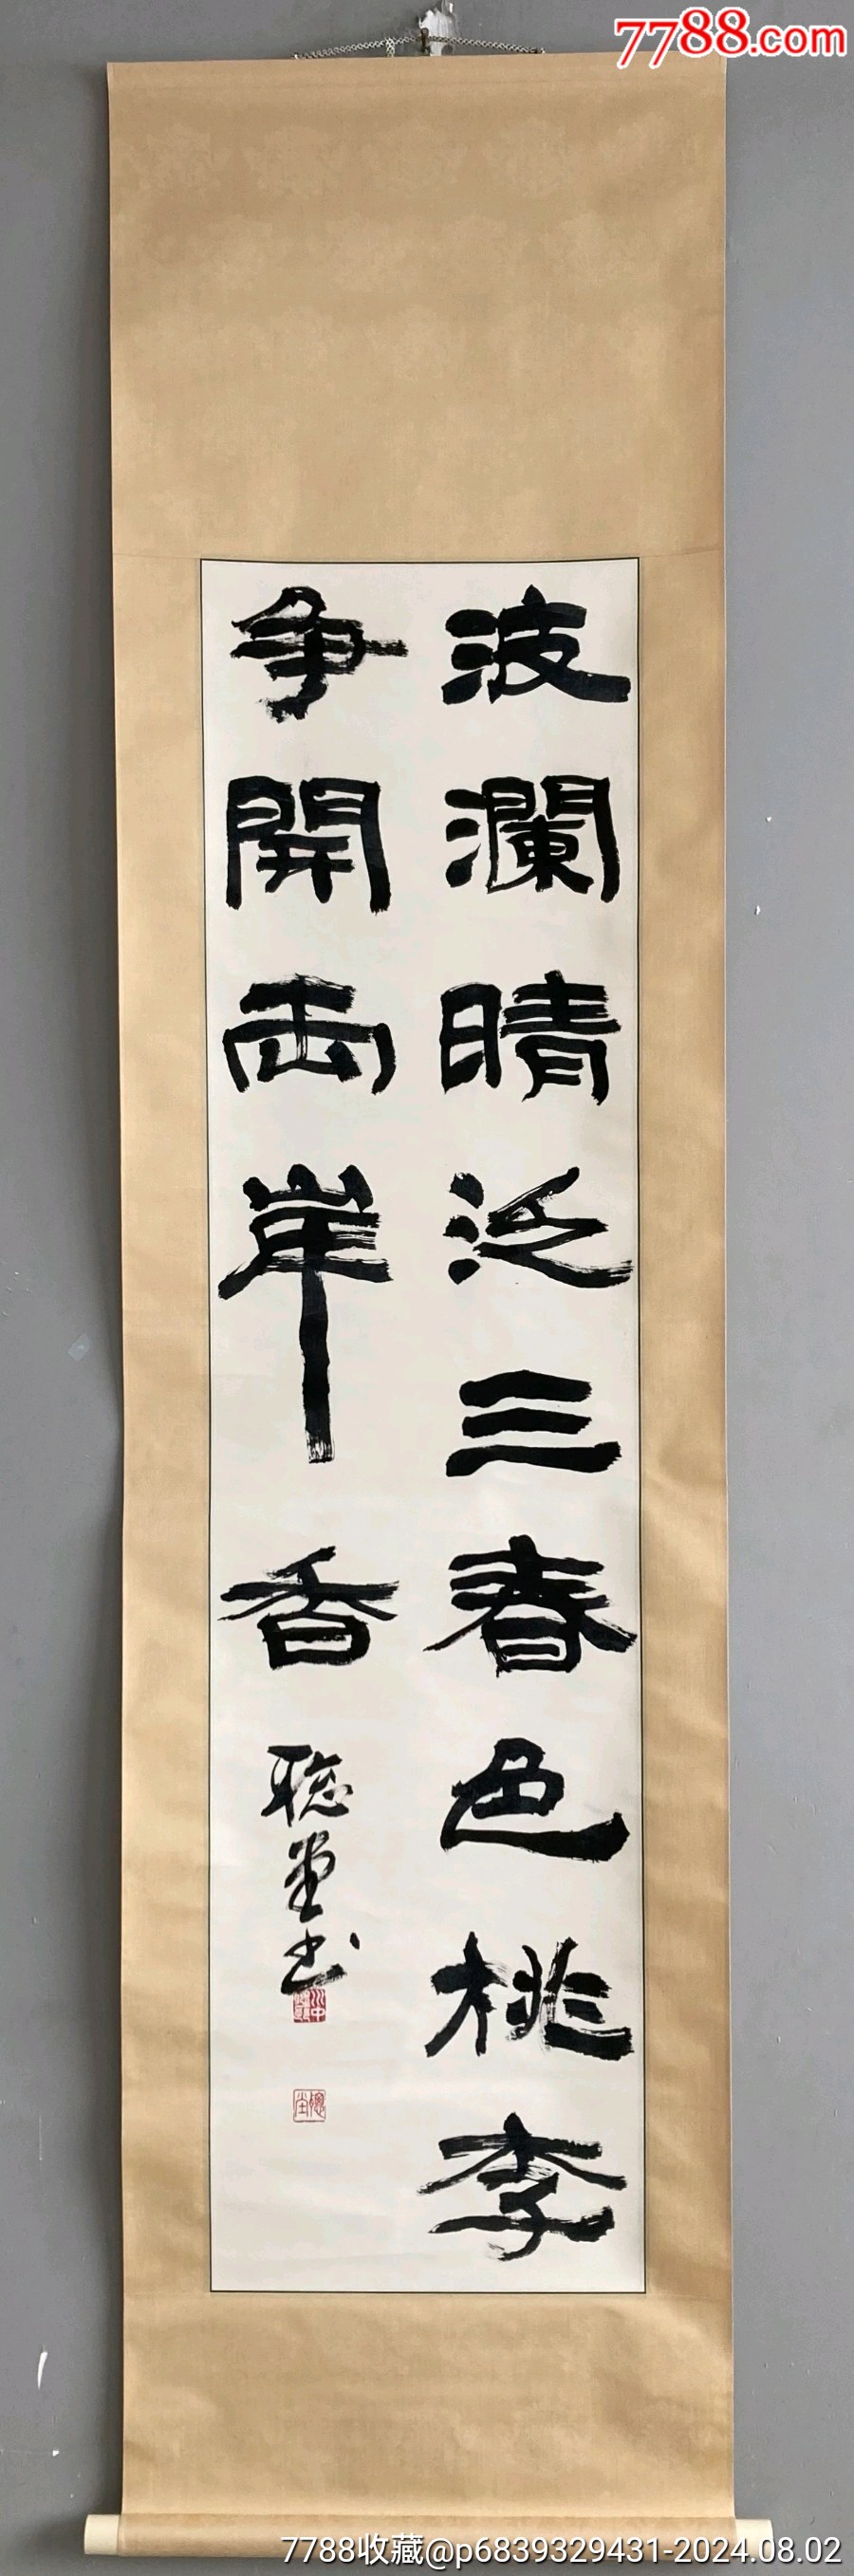 7788.com
波瀾晴泛三春色桃李
争開两岸香
聪堂书
7788收藏@p6839329431-2024.08.02